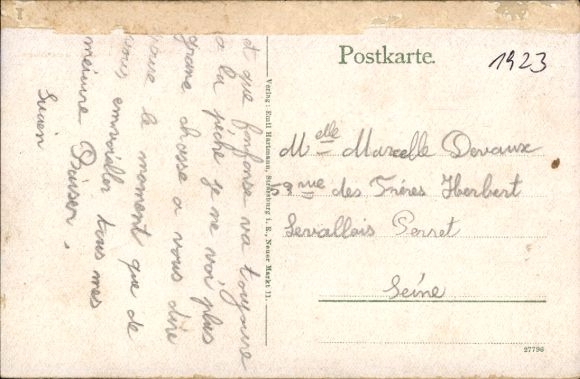 et que fonfonse va toujours
a la pêche je ne voi plus
grane chosse a vous dire
pour le moment que de
vous, envoiller tous mes
meiure Baiser,
Lucien
Verlag: Emil Hartmann, Strassburg i. E., Neuer Markt 11.
Postkarte.
1923
Melle Marcelle Devaux
59 rue des Frères Herbert
Levallois Perret
Seine
27796